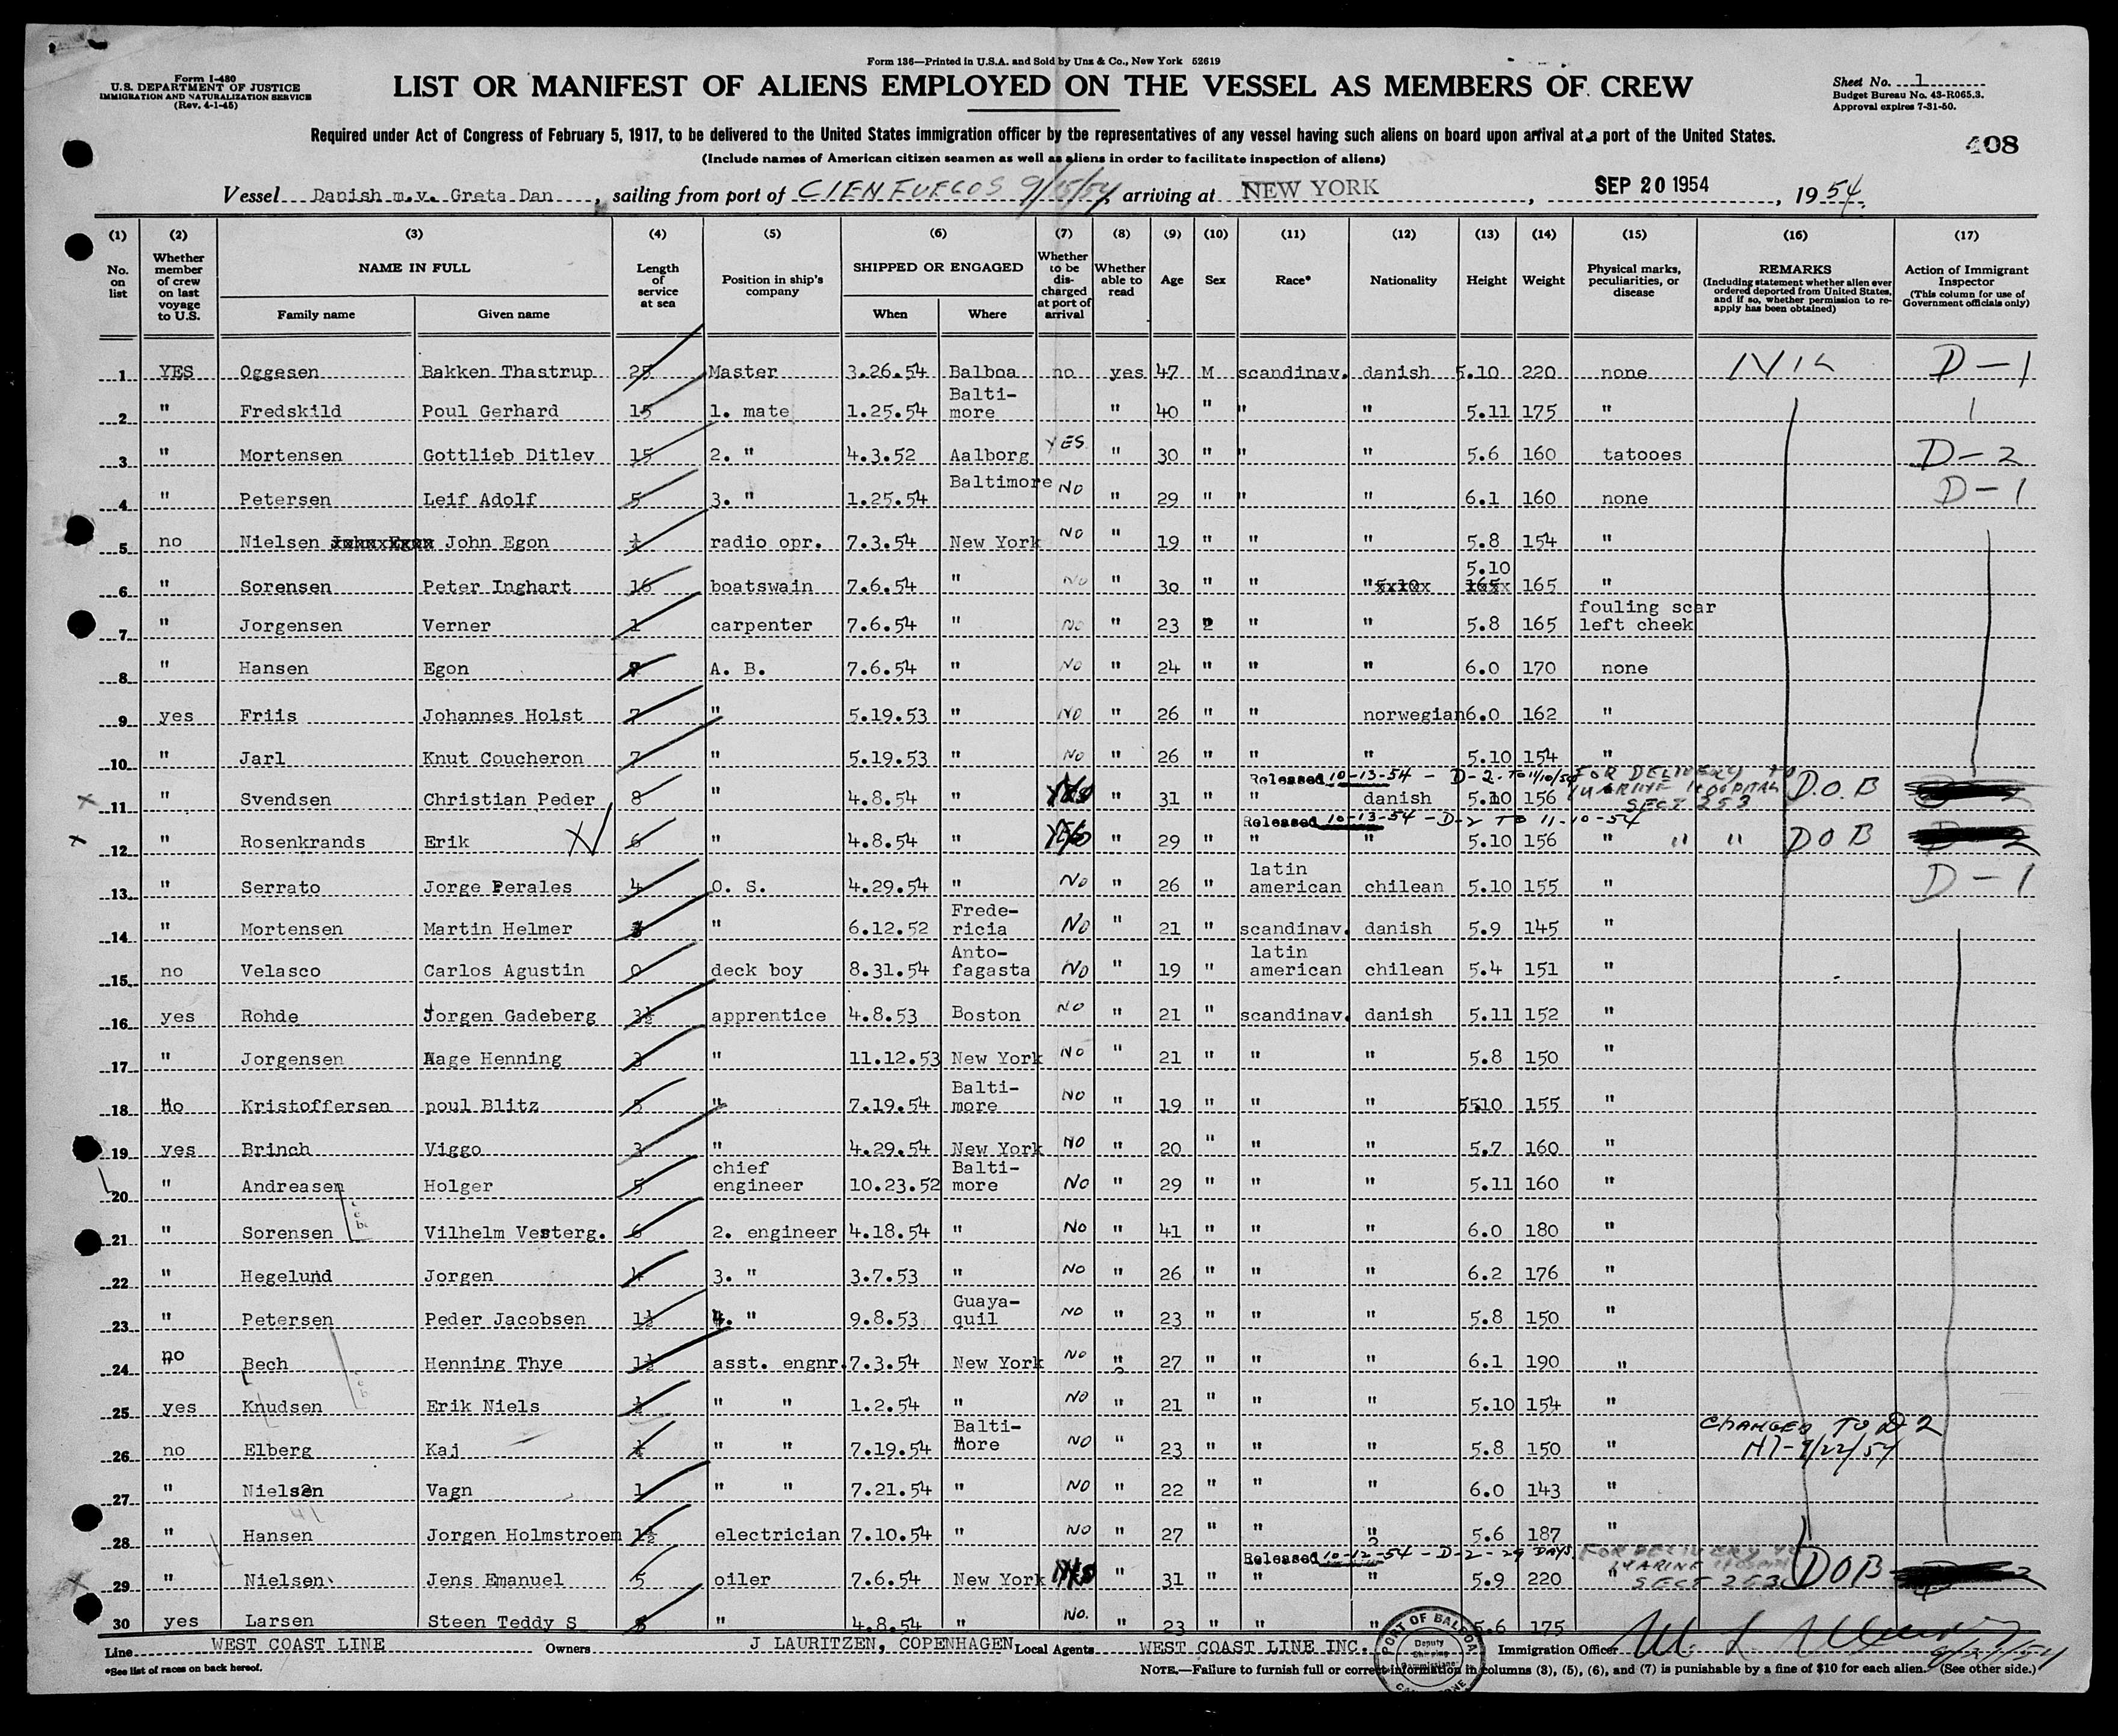 Form I-480
U.S. DEPARTMENT OF JUSTICE
IMMIGRATION AND NATURALIZATION SERVICE
(Rev. 4-1-45)
Form 136—Printed in U.S.A. and Sold by Unz & Co., New York 52619
LIST OR MANIFEST OF ALIENS EMPLOYED ON THE VESSEL AS MEMBERS OF CREW
Sheet No. 1
Budget Bureau No. 43-R065.3.
Approval expires 7-31-50.
Required under Act of Congress of February 5, 1917, to be delivered to the United States immigration officer by the representatives of any vessel having such aliens on board upon arrival at a port of the United States.
(Include names of American citizen seamen as well as aliens in order to facilitate inspection of aliens)
408
Vessel Danish m.v. Greta Dan, sailing from port of CIENFUEGOS 9/15/54, arriving at NEW YORK, SEP 20 1954, 1954.
(1) (2) (3) (4) (5) (6) (7) (8) (9) (10) (11) (12) (13) (14) (15) (16) (17)
No. on list
Whether member of crew on last voyage to U.S.
NAME IN FULL
Family name Given name
Length of service at sea
Position in ship's company
SHIPPED OR ENGAGED
When Where
Whether to be discharged at port of arrival
Whether able to read
Age Sex Race* Nationality Height Weight
Physical marks, peculiarities, or disease
REMARKS
(Including statement whether alien ever ordered deported from United States, and if so, whether permission to reapply has been obtained)
Action of Immigrant Inspector
(This column for use of Government officials only)
1 YES Oggesen Bakken Thastrup 25 Master 3.26.54 Balboa no yes 47 M scandinav. danish 5.10 220 none Nil D-1
2 " Fredskild Poul Gerhard 15 1. mate 1.25.54 Baltimore " 40 " " " 5.11 175 "
3 " Mortensen Gottlieb Ditlev 15 2. " 4.3.52 Aalborg YES " 30 " " " 5.6 160 tatooes D-2
4 " Petersen Leif Adolf 5 3. " 1.25.54 Baltimore No " 29 " " " 6.1 160 none D-1
5 no Nielsen John Egon ½ radio opr. 7.3.54 New York No " 19 " " " 5.8 154 "
6 " Sorensen Peter Inghart 16 boatswain 7.6.54 " No " 30 " " " 5.10 165 "
7 " Jorgensen Verner 1 carpenter 7.6.54 " No " 23 " " " 5.8 165 fouling scar left cheek
8 " Hansen Egon A. B. 7.6.54 " No " 24 " " " 6.0 170 none
9 yes Friis Johannes Holst 7 " 5.19.53 " No " 26 " " norwegian 6.0 162 "
10 " Jarl Knut Coucheron 7 " 5.19.53 " No " 26 " " " 5.10 154 "
Released 10-13-54 - D-2- TO 11/10/54 FOR DELIVERY TO MARINE HOSPITAL SECT 253
11 " Svendsen Christian Peder 8 " 4.8.54 " " 31 " " danish 5.10 156 D.O.B
Released 10-13-54 - D-2 TO 11-10-54
12 " Rosenkrands Erik 6 " 4.8.54 " " 29 " " " 5.10 156 " " " DOB
13 " Serrato Jorge Perales 4 O. S. 4.29.54 " No " 26 " latin american chilean 5.10 155 " D-1
14 " Mortensen Martin Helmer " 6.12.52 Fredericia No " 21 " scandinav. danish 5.9 145 "
15 no Velasco Carlos Agustin 0 deck boy 8.31.54 Antofagasta No " 19 " latin american chilean 5.4 151 "
16 yes Rohde Jorgen Gadeberg 3½ apprentice 4.8.53 Boston No " 21 " scandinav. danish 5.11 152 "
17 " Jorgensen Aage Henning 3 " 11.12.53 New York No " 21 " " " 5.8 150 "
18 no Kristoffersen poul Blitz 5 " 7.19.54 Baltimore No " 19 " " " 5.10 155 "
19 yes Brinch Viggo 3 " 4.29.54 New York No " 20 " " " 5.7 160 "
20 " Andreasen Holger 5 chief engineer 10.23.52 Baltimore No " 29 " " " 5.11 160 "
21 " Sorensen Vilhelm Vesterg. 6 2. engineer 4.18.54 " No " 41 " " " 6.0 180 "
22 " Hegelund Jorgen 4 3. " 3.7.53 " No " 26 " " " 6.2 176 "
23 " Petersen Peder Jacobsen 1½ 4. " 9.8.53 Guayaquil No " 23 " " " 5.8 150 "
24 no Bech Henning Thye 1½ asst. engnr. 7.3.54 New York No " 27 " " " 6.1 190 "
25 yes Knudsen Erik Niels ½ " " 1.2.54 " No " 21 " " " 5.10 154 "
26 no Elberg Kaj " " 7.19.54 Baltimore No " 23 " " " 5.8 150 " CHANGED TO D2 9/22/54
27 " Nielsen Vagn 1 " " 7.21.54 " No " 22 " " " 6.0 143 "
28 " Hansen Jorgen Holmstroem 1½ electrician 7.10.54 " No " 27 " " " 5.6 187 "
Released 10-12-54 - D-2 - 29 DAYS FOR DELIVERY TO MARINE HOSPITAL SECT 253
29 " Nielsen Jens Emanuel 5 oiler 7.6.54 New York " 31 " " " 5.9 220 " DOB
30 yes Larsen Steen Teddy S " 4.8.54 " No. " 23 " " " 5.6 175
Line WEST COAST LINE Owners J LAURITZEN, COPENHAGEN Local Agents WEST COAST LINE INC. Immigration Officer
PORT OF BALBOA Deputy Shipping Commissioner
*See list of races on back hereof.
NOTE.—Failure to furnish full or correct information in columns (3), (5), (6), and (7) is punishable by a fine of $10 for each alien. (See other side.)